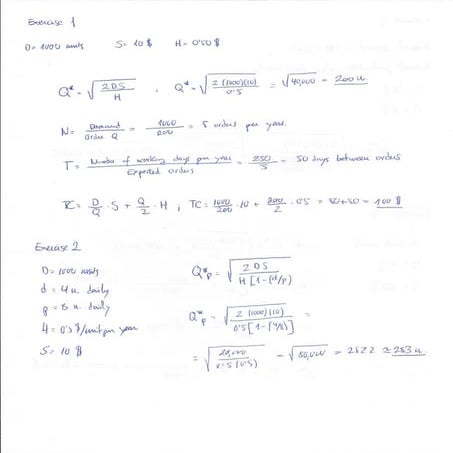 Exercise 1
D= 1000 units S= 10 $ H= 0'50 $
Q* = √(2DS / H) , Q* = √(2 (1000)(10) / 0'5) = √40,000 = 200 u.
N = Demand / Order Q = 1000 / 200 = 5 orders per year.
T = Number of working days per year / Expected orders = 250 / 5 = 50 days between orders
TC = D/Q · S + Q/2 · H ; TC = 1000/200 · 10 + 200/2 · 0'5 = 50+50 = 100 $
Exercise 2
D= 1000 units
d = 4 u. daily
p = 8 u. daily
H = 0'5 $/unit per year
S = 10 $
Q*p = √(2DS / H [1-(d/p)])
Q*p = √(2 (1000)(10) / 0'5 [1-(4/8)]) =
= √(20,000 / 0'5 (0'5)) = √80,000 = 282'2 ≈ 283 u.